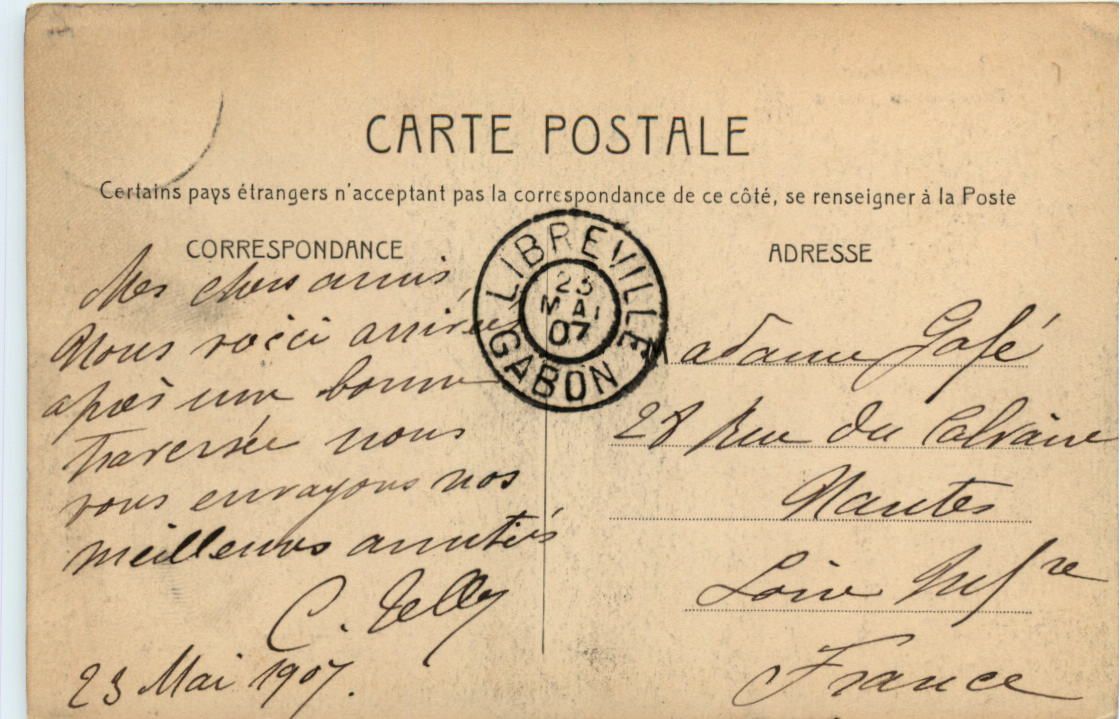 CARTE POSTALE
Certains pays étrangers n'acceptant pas la correspondance de ce côté, se renseigner à la Poste
CORRESPONDANCE
Mes chers amis,
Nous voici arrivés
après une bonne
traversée nous
vous envoyons nos
meilleures amitiés
C.
23 Mai 1907.
LIBREVILLE
23
MAI
07
GABON
ADRESSE
Madame Gafé
28 Rue du Calvaire
Nantes
Loire Infre
France